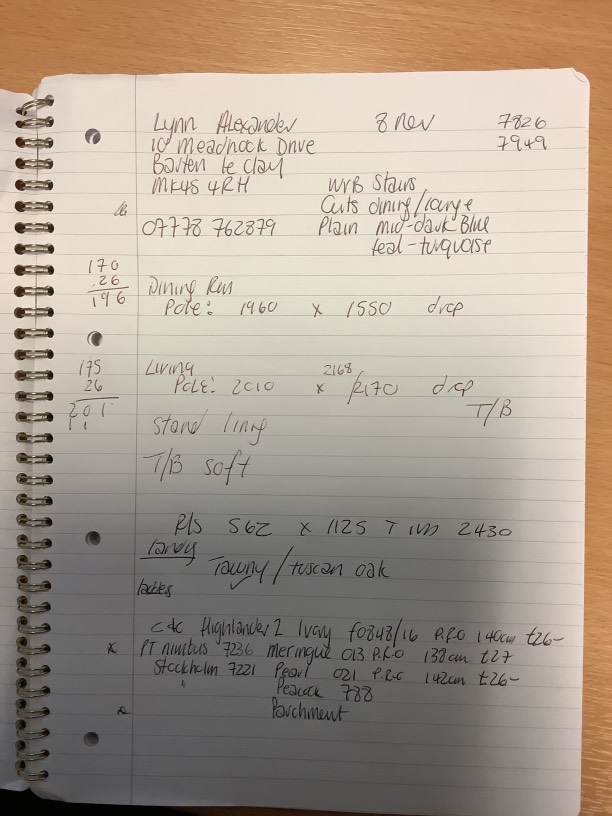 Lynn Alexander 8 Nov 7826
10 Meadhock Drive 7949
Barten le Clay
MK45 4RH WVB Stairs
Cuts dining/lounge
07778 762879 Plain mid-dark Blue
teal-turquoise
170
26
196
Dining Rm
Pole: 1960 x 1550 drop
175
26
201
1 1
Living 2168
Pole: 2010 x 2170 drop
T/B
Stand lining
T/B soft
R/S 562 x 1125 T 1 VD 2430
landing
Tawny / tuscan oak
ladders
C&C Highlander 2 Ivory f0848/16 P.R.O 140cm £26-
x PT nimbus 7236 meringue 013 P.R.O 138cm £27
Stockholm 7221 Pearl 021 P.R.O 142cm £26-
" Peacock 788
x Parchment